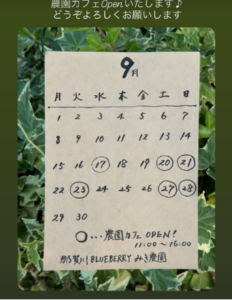 農園カフェOpenいたします♪
どうぞよろしくお願いします
9月
月 火 水 木 金 土 日
1 2 3 4 5 6 7
8 9 10 11 12 13 14
15 16 17 18 19 20 21
22 23 24 25 26 27 28
29 30
○・・・農園カフェ OPEN!
11:00〜16:00
那賀川 BLUEBERRY みき農園